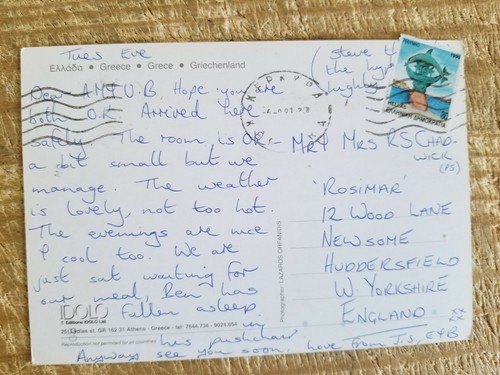 Tues Eve
Ελλάδα • Greece • Grece • Griechenland
Dear A M & U.B. Hope you are
both O.K. Arrived here
safely. The room is OK -
a bit small but we
manage. The weather
is lovely, not too hot.
The evenings are nice
& cool too. We are
just sat waiting for
our meal, Ben has
fallen asleep
in
his pushchair.
Anyways see you soon. Love from J,S, E+B
(Steve
the
Mr & Mrs RS Chad-
wick
(PS)
'Rosimar'
12 Wood Lane
Newsome
Huddersfield
W. Yorkshire
England
ΚΕΡΚΥΡΑ
80
Photographer: LAZAROS ORFANIDIS
IDOLO
© Editions IDOLO Ltd
GR 162 31 Athens - Greece - tel: 7644.734 - 9024.634
Reproduction not permitted for all countries